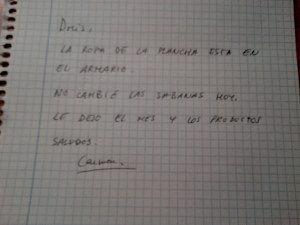 Doris,
LA ROPA DE LA PLANCHA ESTA EN
EL ARMARIO.
NO CAMBIE LAS SABANAS HOY.
LE DEJO EL MES Y LOS PRODUCTOS
SALUDOS.
Carmen.